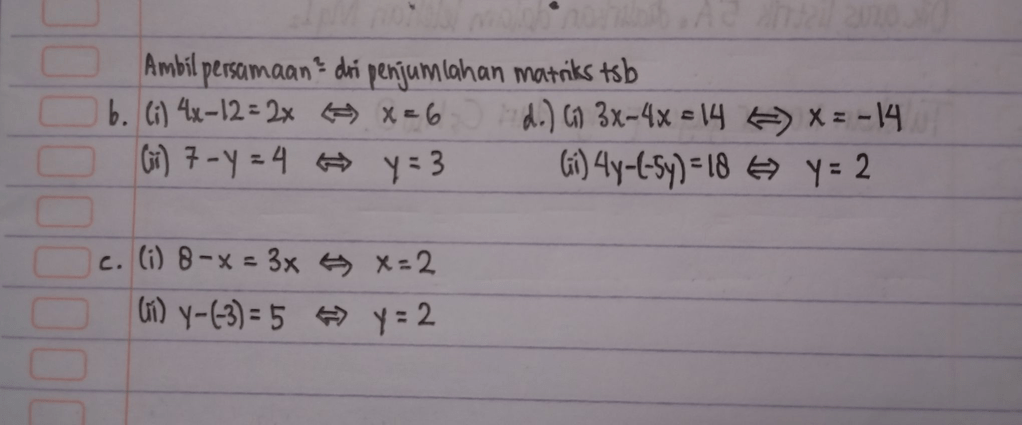 Ambil persamaan² dri penjumlahan matriks tsb
b. (i) 4x-12=2x ⇔ x=6
(ii) 7-y=4 ⇔ y=3
c. (i) 8-x=3x ⇔ x=2
(ii) y-(-3)=5 ⇔ y=2
d.) (i) 3x-4x=14 ⇔ x=-14
(ii) 4y-(-5y)=18 ⇔ y=2